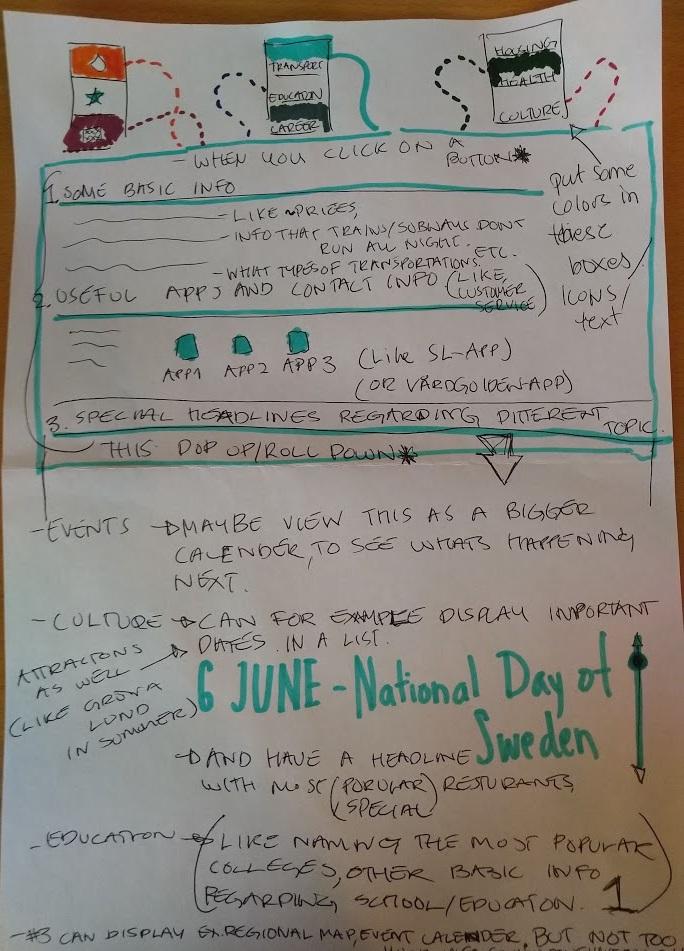 TRANSPORT
EDUCATION
CAREER
HOUSING
HEALTH
CULTURE
- WHEN YOU CLICK ON A BUTTON*
put some
colors in
these
boxes/
ICONS/
text
1. SOME BASIC INFO
- LIKE PRICES,
- INFO THAT TRAINS/SUBWAYS DONT
RUN ALL NIGHT.
ETC.
- WHAT TYPES OF TRANSPORTATIONS.
2. USEFUL APPS AND CONTACT INFO (LIKE CUSTOMER SERVICE)
APP1 APP2 APP3
(Like SL-APP)
(OR VÅRDGUIDEN-APP)
3. SPECIAL HEADLINES REGARDING DIFFERENT TOPIC.
THIS POP UP/ROLL DOWN*
- EVENTS → MAYBE VIEW THIS AS A BIGGER
CALENDER, TO SEE WHATS HAPPENING
NEXT.
- CULTURE → CAN FOR EXAMPLE DISPLAY INPORTANT
DATES. IN A LIST.
ATTRACTIONS
AS WELL →
(LIKE GRÖNA
LUND
IN SUMMER)
6 JUNE - National Day of
Sweden
→ AND HAVE A HEADLINE
WITH MOST (POPULAR) RESTURANTS,
(SPECIAL)
- EDUCATION → (LIKE NAMING THE MOST POPULAR
COLLEGES, OTHER BASIC INFO
REGARDING SCHOOL/EDUCATON.) 1
- #3 CAN DISPLAY EX. REGIONAL MAP, EVENT CALENDER, BUT NOT TOO